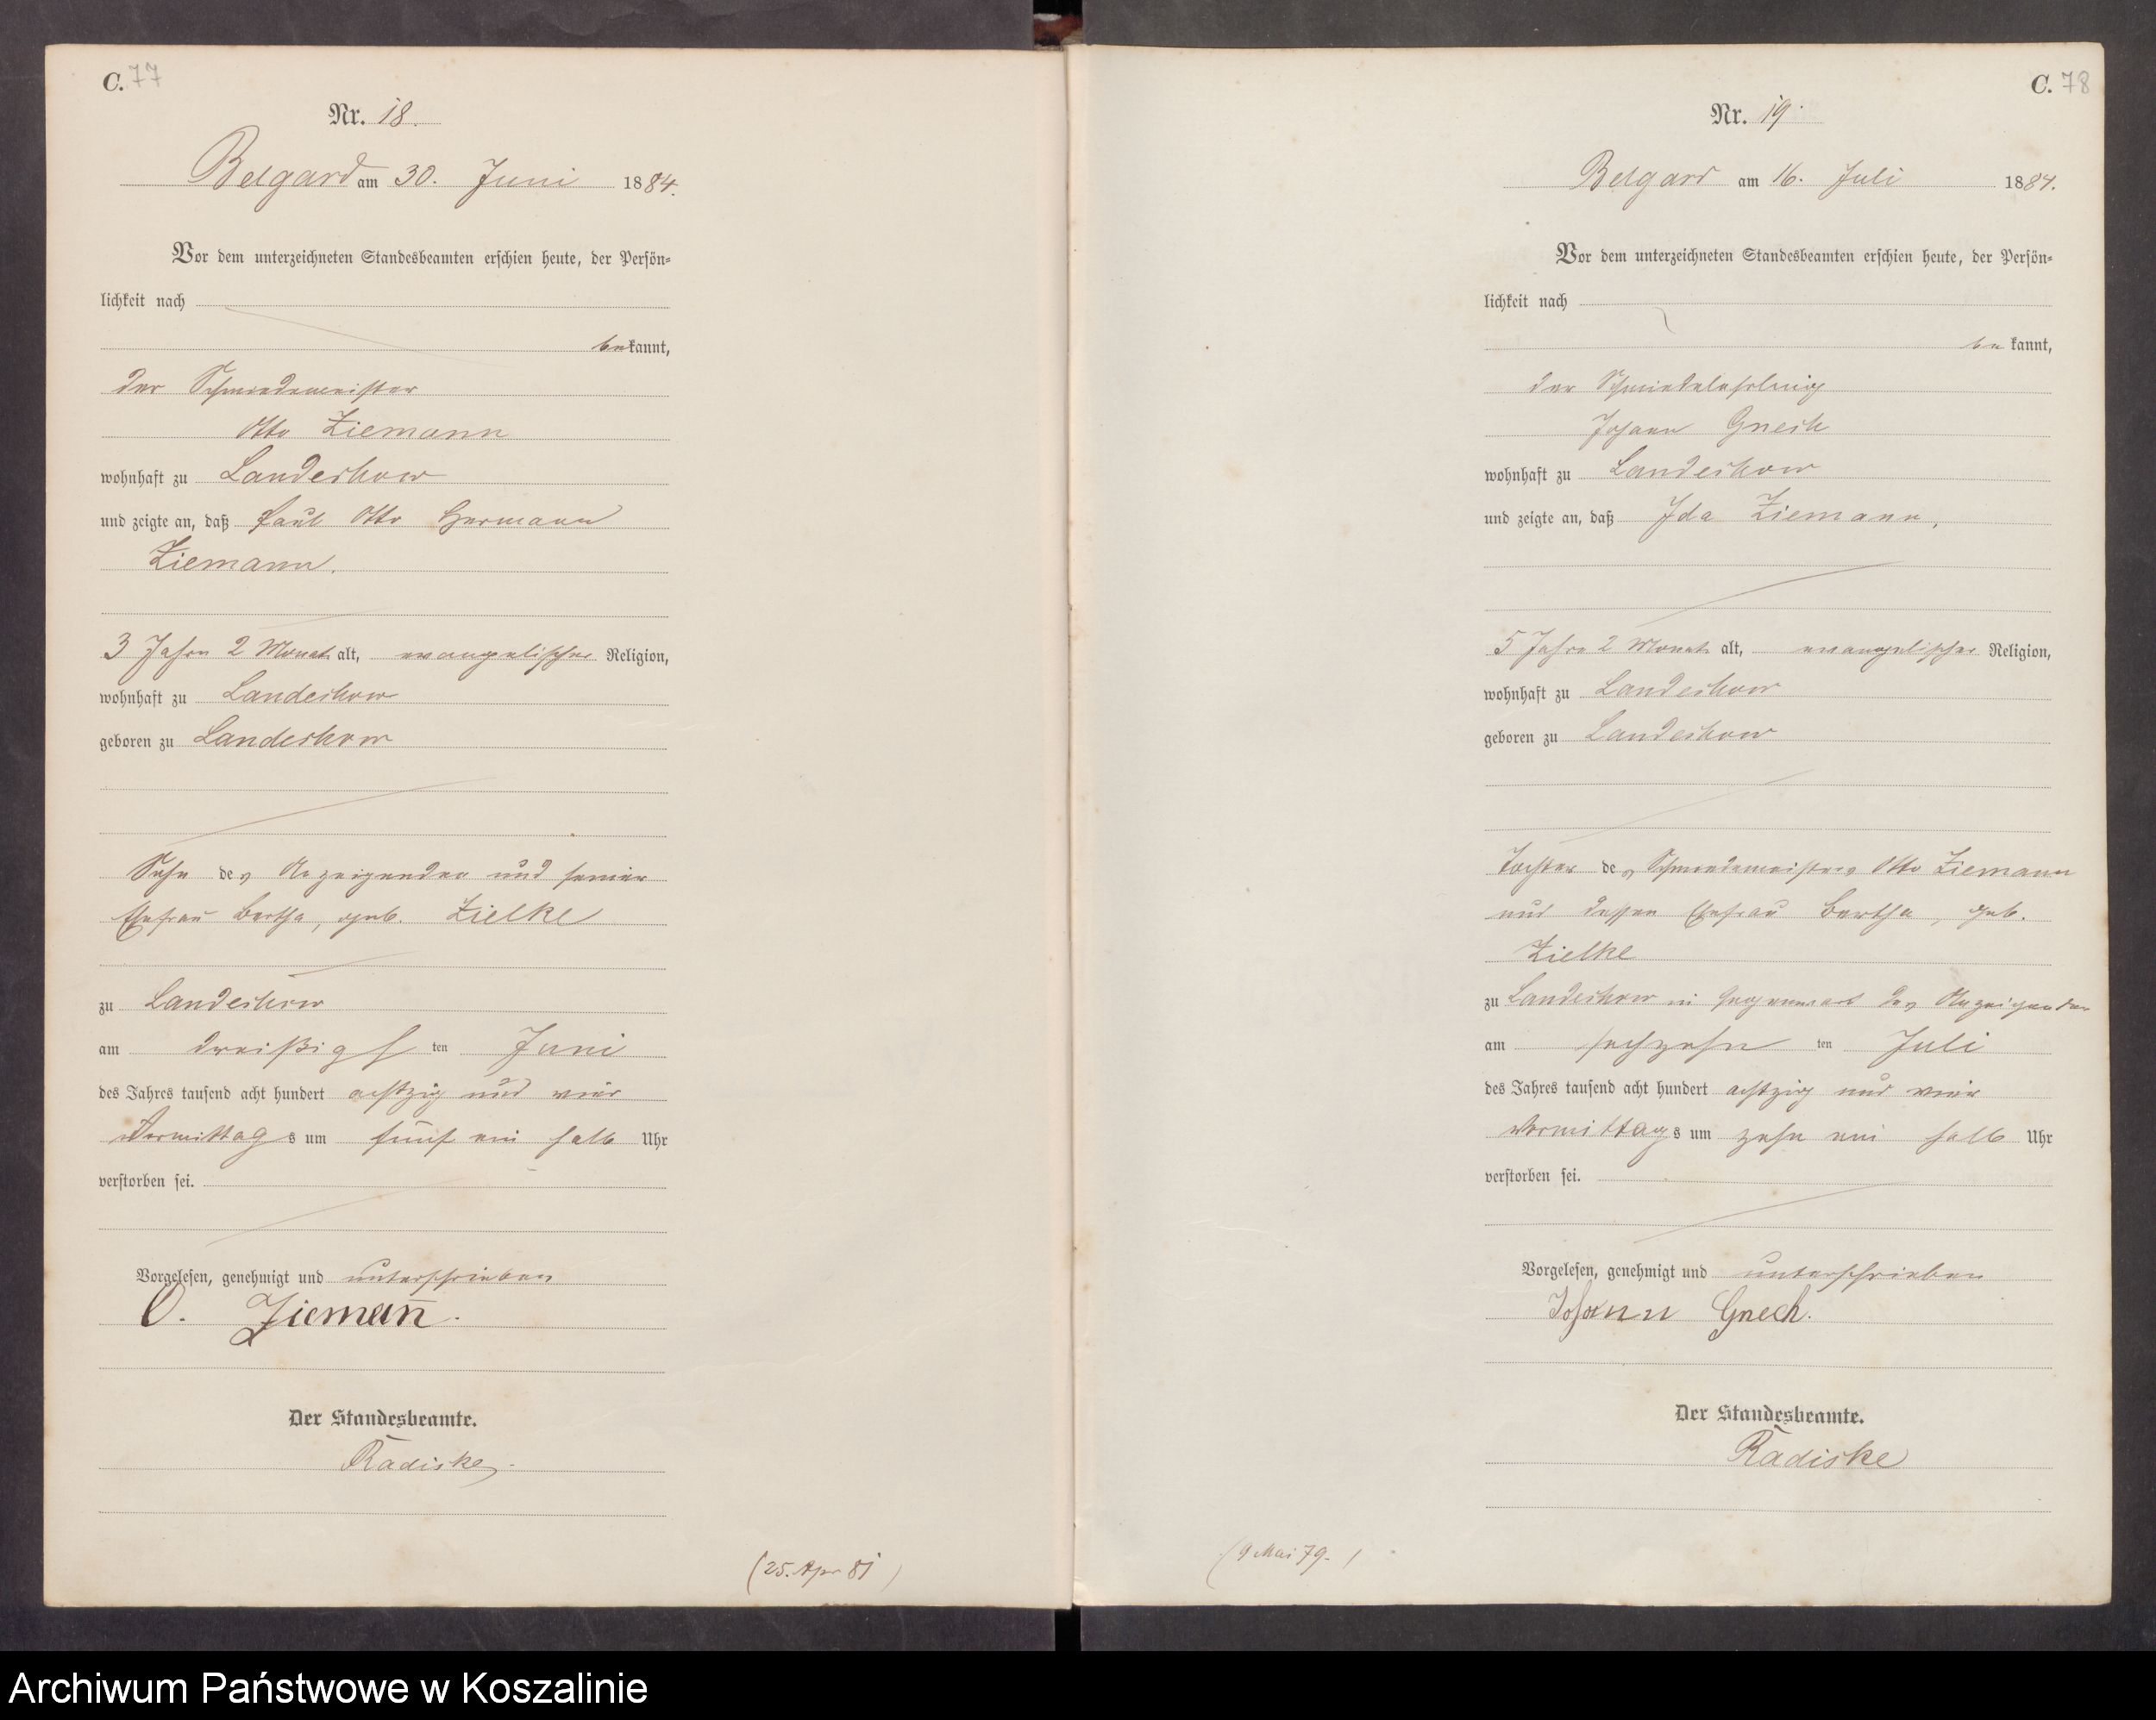 C. 77
Nr. 18.
Belgard am 30. Juni 1884.
Vor dem unterzeichneten Standesbeamten erschien heute, der Persön-
lichkeit nach
bekannt,
der Schmiedemeister
Otto Ziemann
wohnhaft zu Landeskow
und zeigte an, daß Paul Otto Hermann
Ziemann.
3 Jahre 2 Monat alt, evangelischer Religion,
wohnhaft zu Landeskow
geboren zu Landeskow
Sohn des Anzeigenden und seiner
Ehefrau Bertha, geb. Zielke
zu Landeskow
am dreißigsten Juni
des Jahres tausend acht hundert achtzig und vier
Vormittags um fünf ein halb Uhr
verstorben sei.
Vorgelesen, genehmigt und unterschrieben
O. Ziemañ.
Der Standesbeamte.
Radiske.
(25. Apr 81)
C. 78
Nr. 19.
Belgard am 16. Juli 1884.
Vor dem unterzeichneten Standesbeamten erschien heute, der Persön-
lichkeit nach
bekannt,
der Schmiedelehrling
Johann Gnech
wohnhaft zu Landeskow
und zeigte an, daß Ida Ziemann,
5 Jahre 2 Monate alt, evangelischer Religion,
wohnhaft zu Landeskow
geboren zu Landeskow
Tochter des Schmiedemeisters Otto Ziemann
und dessen Ehefrau Bertha, geb.
Zielke
zu Landeskow in Gegenwart des Anzeigenden
am sechzehnten Juli
des Jahres tausend acht hundert achtzig und vier
Vormittags um zehn ein halb Uhr
verstorben sei.
Vorgelesen, genehmigt und unterschrieben
Johann Gnech.
Der Standesbeamte.
Radiske
(9 Mai 79.)
Archiwum Państwowe w Koszalinie